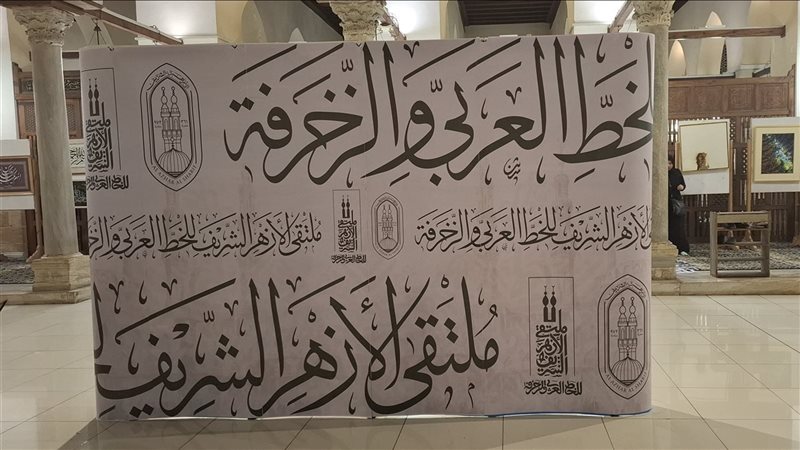 لخطِّ العربيِّ والزَّخرفة
ملتقى الأزهر الشريف للخط العربي والزخرفة
ملتقى الأزهر الشريف للخط العربي والزخرفة
مُلتقى الأزهر الشَّريف لـ
ملتقى الأزهر الشريف
للخط العربي والزخرفة
AL AZHAR AL SHARIF